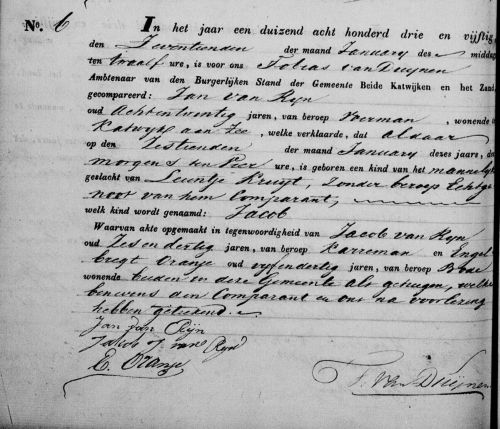 No. 6
In het jaar een duizend acht honderd drie en vijftig
den Zeventienden der maand January des middags
ten twaalf ure, is voor ons Tobias van Duynen
Ambtenaar van den Burgerlijken Stand der Gemeente Beide Katwijken en het Zand
gecompareerd: Jan van Ryn
oud Achtentwintig jaren, van beroep Voerman, wonende te
Katwyk aan Zee, welke verklaarde, dat aldaar
op den Zestienden der maand January dezes jaars, des
morgens ten vier ure, is geboren een kind van het mannelijk
geslacht van Leuntje Kruyt, Zonder beroep Echtge
noot van hem Comparant,
welk kind wordt genaamd: Jacob
Waarvan akte opgemaakt in tegenwoordigheid van Jacob van Ryn
oud Zes en dertig jaren, van beroep Karreman en Engel
bregt Oranje oud vyfendertig jaren, van beroep Bode
wonende beiden in deze Gemeente als getuigen, welke
benevens den Comparant en ons na voorlezing
hebben getekend.
Jan van Rijn
Jacob J van Ryn
E. Oranje
T. van Duijnen